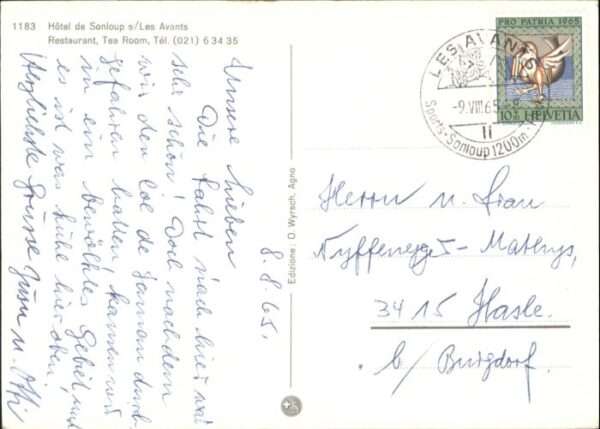 1183 Hôtel de Sonloup s/Les Avants
Restaurant, Tea Room, Tél. (021) 6 34 35
8.8.65.
Unsere Lieben
Die Fahrt nach hier war
sehr schön! Doch nachdem
wir den Col de Jaman durch-
gefahren hatten kamen wir
in ein bewölktes Gebiet, und
es ist was kühl hier oben.
Herzlichste Grüsse
Edizione: O. Wyrsch, Agno
PRO PATRIA 1965
10+10 HELVETIA
LES AVANTS
-9.VIII.65.-8
Sports-Sonloup 1200m.
Herrn u. Frau
Nyffenegger-Mathys,
3415 Hasle.
b/ Burgdorf.